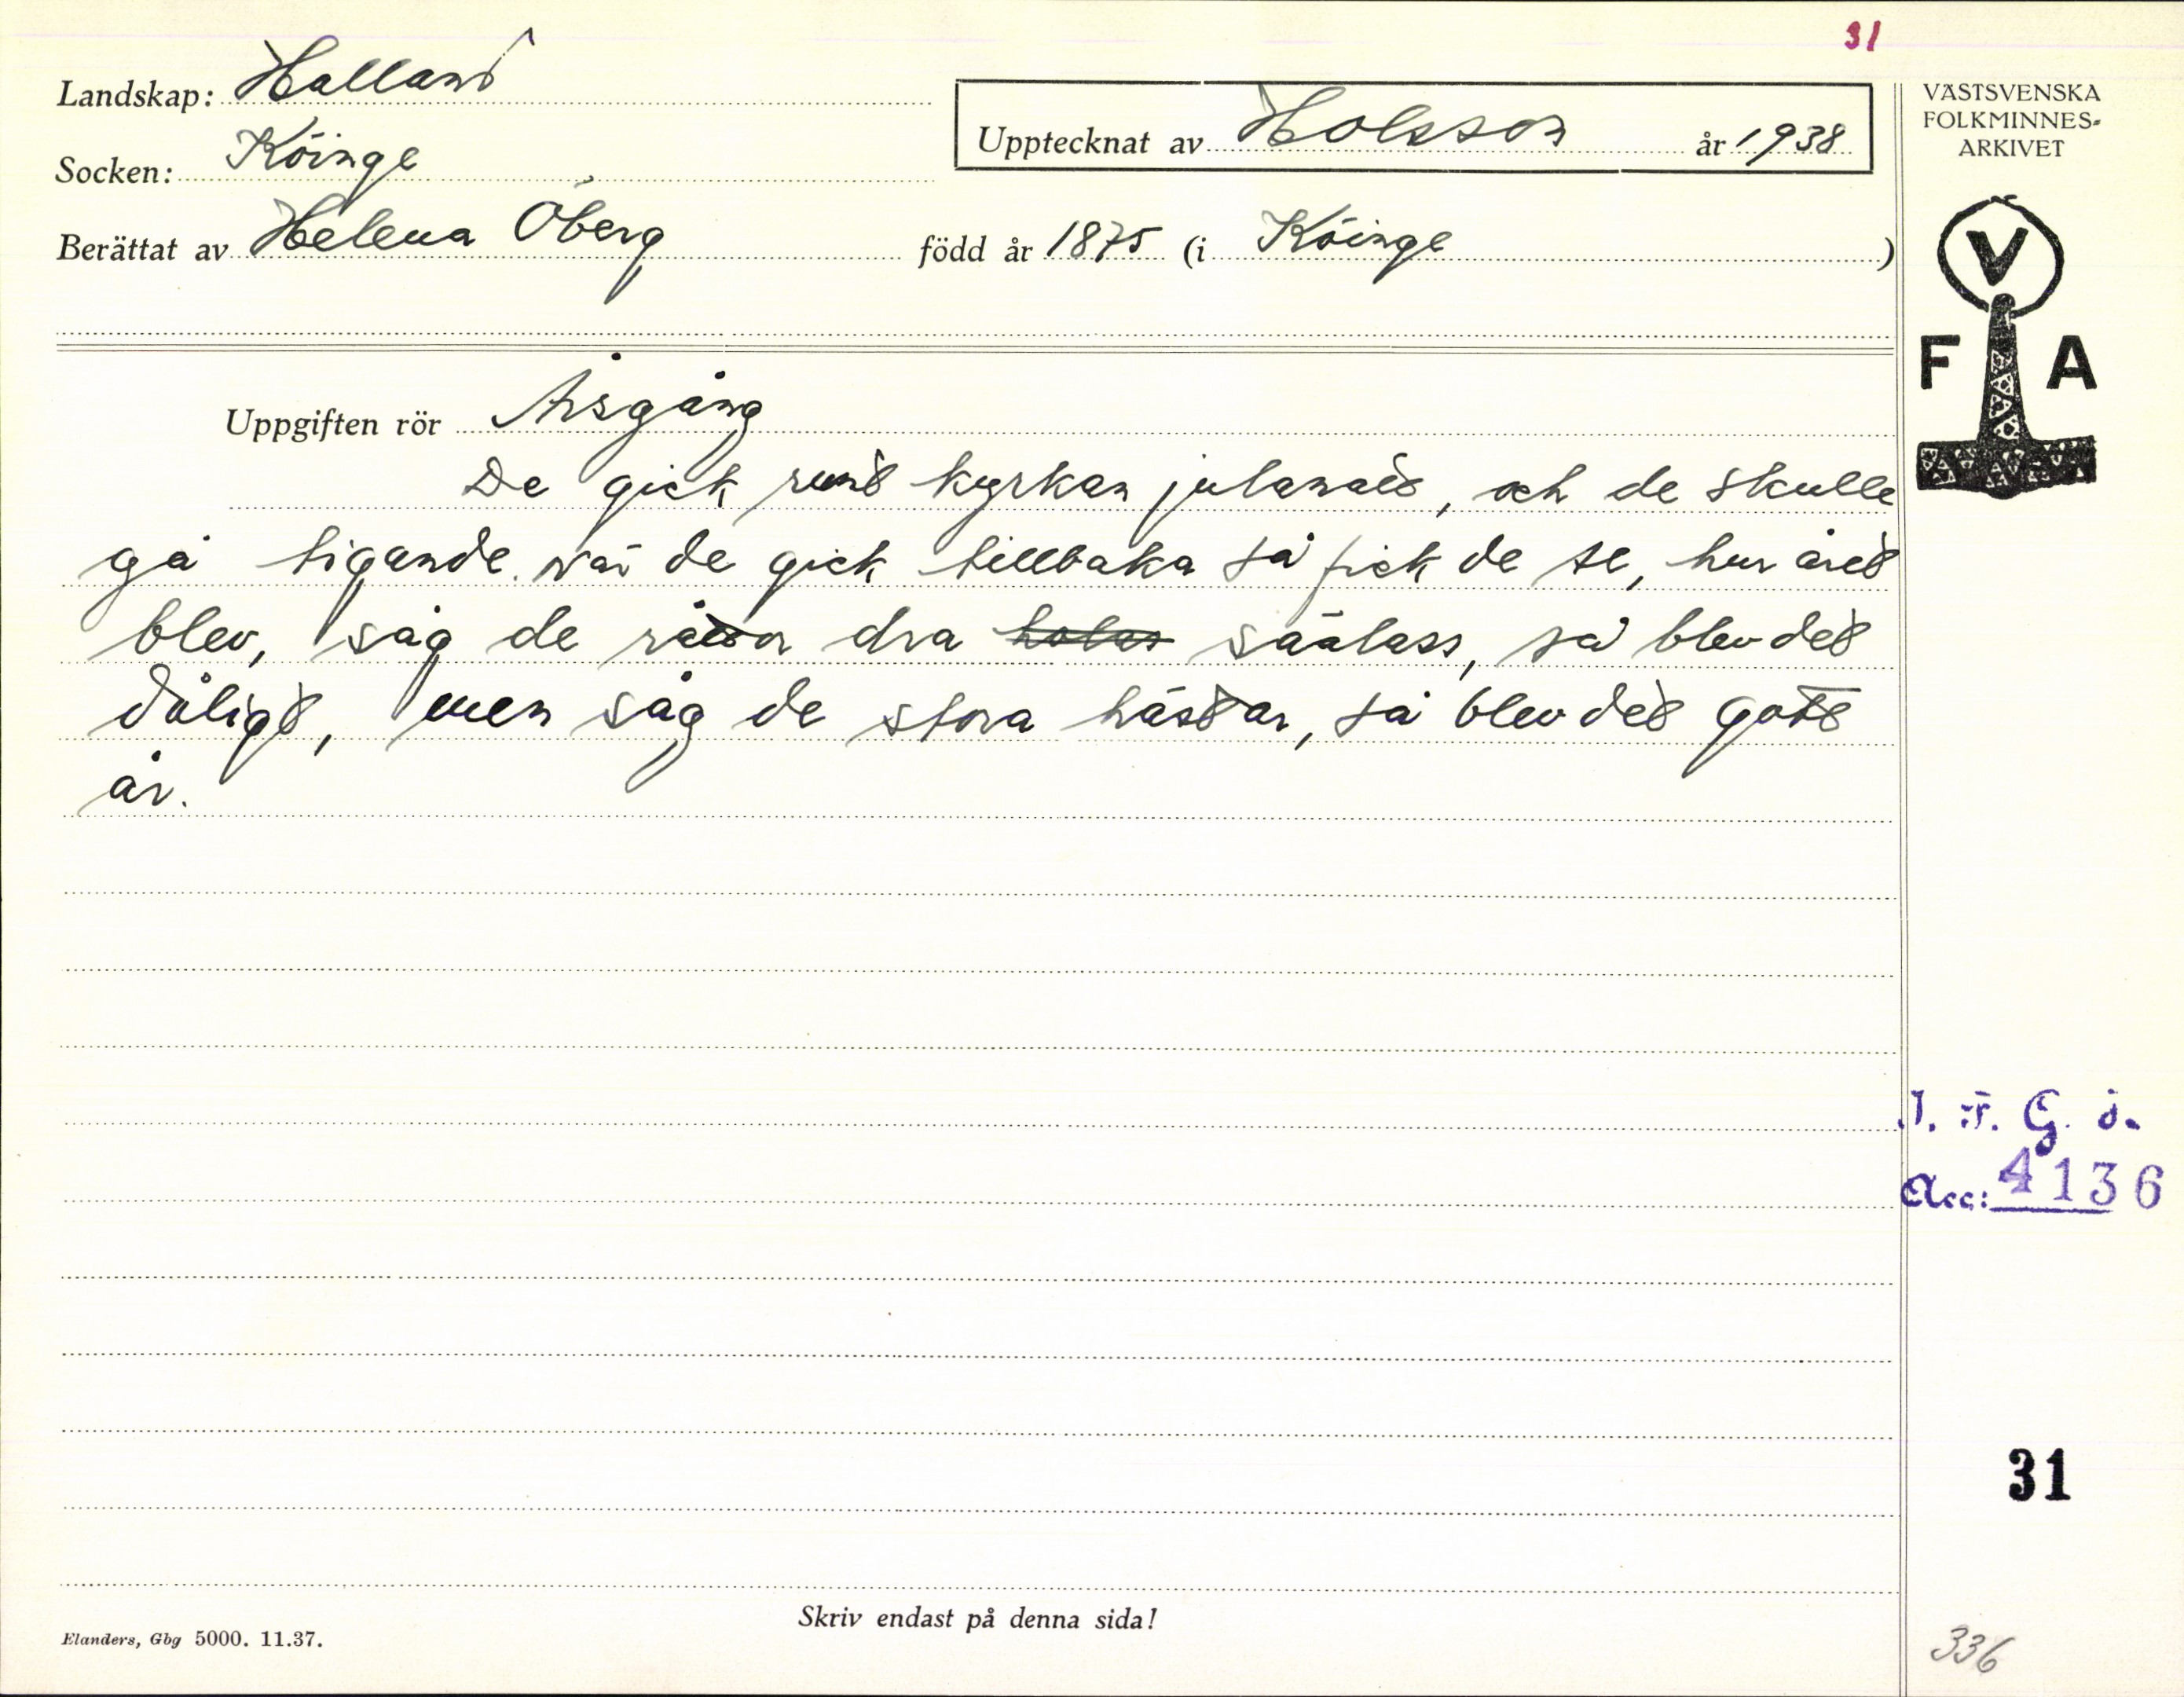 31
Landskap: Halland
Upptecknat av Holsson år 1938
VÄSTSVENSKA
FOLKMINNES-
ARKIVET
Socken: Köinge
Berättat av Helena Öberg född år 1875 (i Köinge)
V
F A
Uppgiften rör Årsgång
De gick runt kyrkan julanatt, och de skulle
gå tigande. När de gick tillbaka så fick de se, hur året
blev, såg de råttor dra säalass, så blev det
dåligt, men såg de stora hästar, så blev det gott
år.
I. F. G. ö.
Acc: 4136
31
Skriv endast på denna sida!
Elanders, Gbg 5000. 11.37.
336